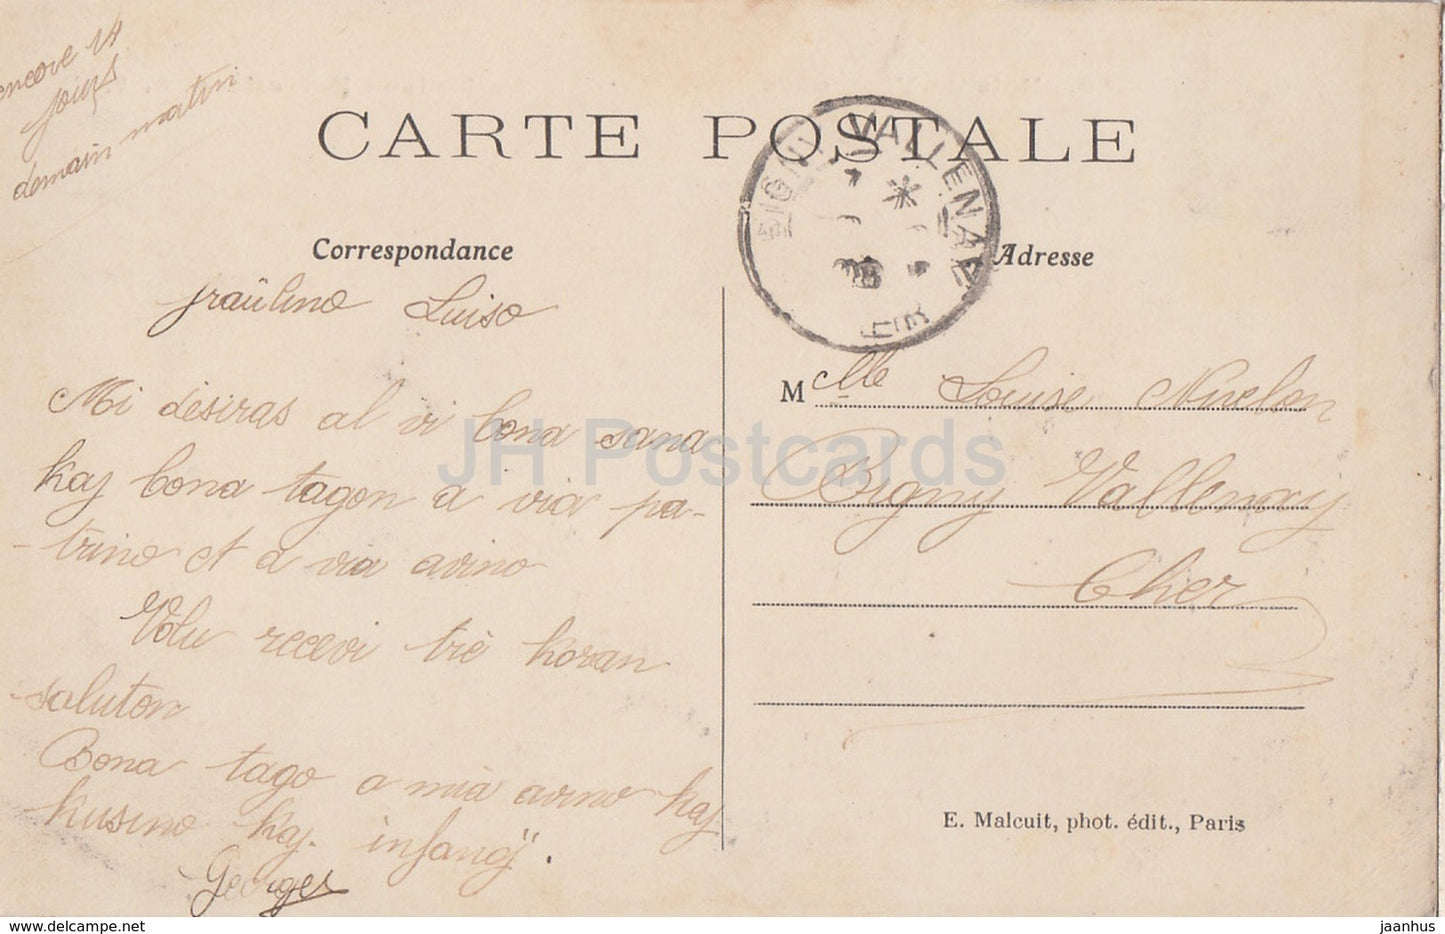 encore 14
jours
demain matin
CARTE POSTALE
BIGNY VALLENAY
CHER
Correspondance
Adresse
fraŭlino Luiso
Mi désiras al vi bona sana
kaj bona tagon a via pa-
-trino et a via avino
Volu recevi trè koran
saluton
Bona tago a mià avino kaj
kusino kaj. infanoj.
Georges
Melle Louise Nivelon
Bigny Vallenay
Cher
E. Malcuit, phot. édit., Paris
JH Postcards
www.delcampe.net
jaanhus